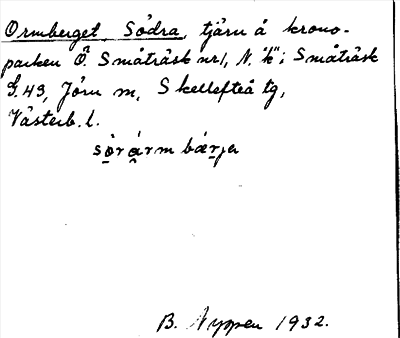 Ormberget, Södra, tjärn å krono-
parken Ö. Småträsk nr 1, N. "k"; Småträsk
S. 43, Jörn m, Skellefteå tg,
Västerb. l.
sö̱r á̱rm bæ̱rjer
B. Nyppen 1932.